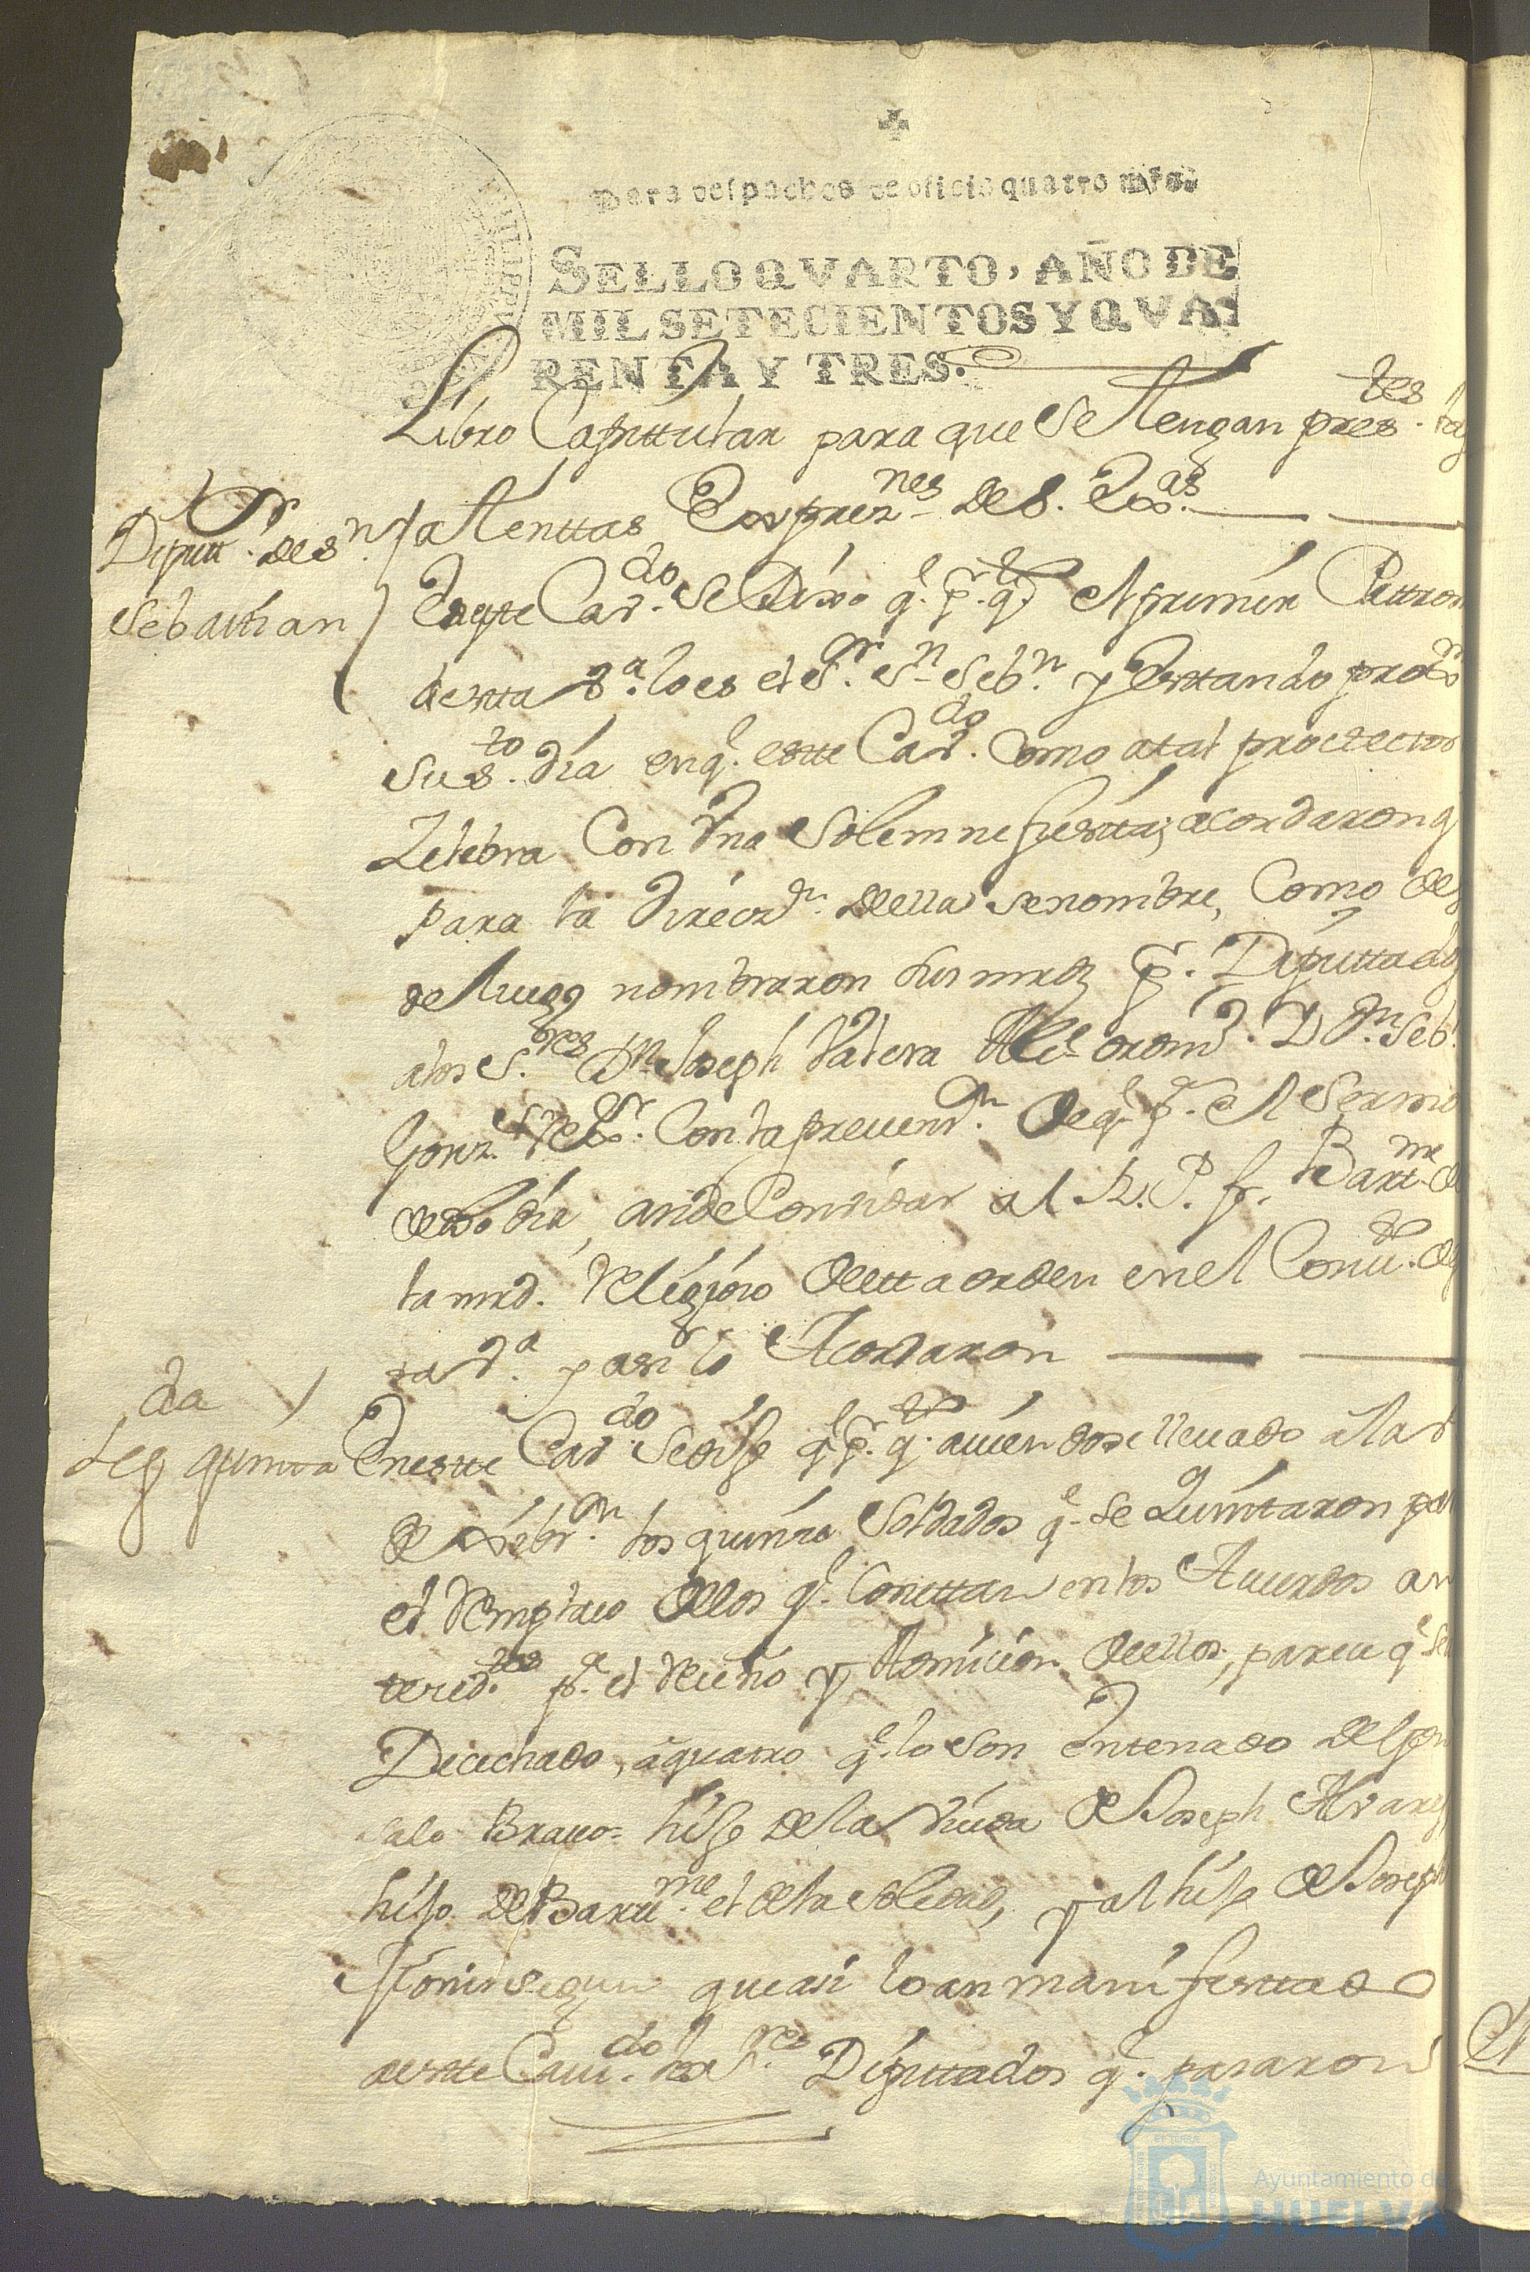 Para despachos de oficio quatro mrs.
SELLO QVARTO, AÑO DE
MIL SETECIENTOS Y QVA
RENTA Y TRES.
Libro Capittular para que se tengan pres.tes
attenttas Exprez.nes de S. Exa.
Diputt. de Sn.
Sebasttian
En este Cav.do se Dixo q.e p.r q.to el primer Pattron
desta V.a lo es el S.r S.n Seb.n y estando prox.
su s.to dia en q.e este Cav.do Como a tal protector
Zelebra Con Vna Solemne fiestta; acordaron q
para la direcz.n della se nombre, Como de
de luego nombraron sus mrds p.r Diputtados
a los S.res D.n Joseph Valera Alc.e ordin. D.n Seb.
Gonz. Con la prevenz.n de q.e p.a el Sermo
de dho dia, an de Convidar al R. P. fr. Bart.me
la mrd. Religioso de estta orden en el Conv.to de
ta V.a y asi lo Acordaron
da
Leg quinta
En este Cav.do se dijo q.e p.r q.to aviendose llevado a la V
de xebr. los quinze Soldados q.e se Quinttaron pa
el Remplazo dellos q.e Consttan en los Acuerdos an
tezed.tes p.a el Reciuo y Remision de ellos, parece q.e se
Decechado, a quatro q.e lo son entenado de Gon
salo Bravo= hijo de la Viuda de Joseph Alvarez
hijo de Bartt.me el de la Soledad, y al hijo de Joseph
que asi lo an manifesttado
a estte Cavi.do los S.res Diputtados q.e pasaron
Ayuntamiento de
HUELVA